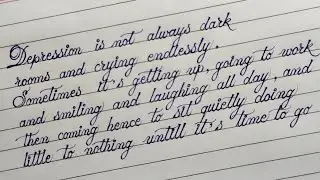 Depression is not always dark
rooms and crying endlessly.
Sometimes it's getting up, going to work
and smiling and laughing all day, and
then coming hence to sit quietly doing
little to nothing untill it's time to go